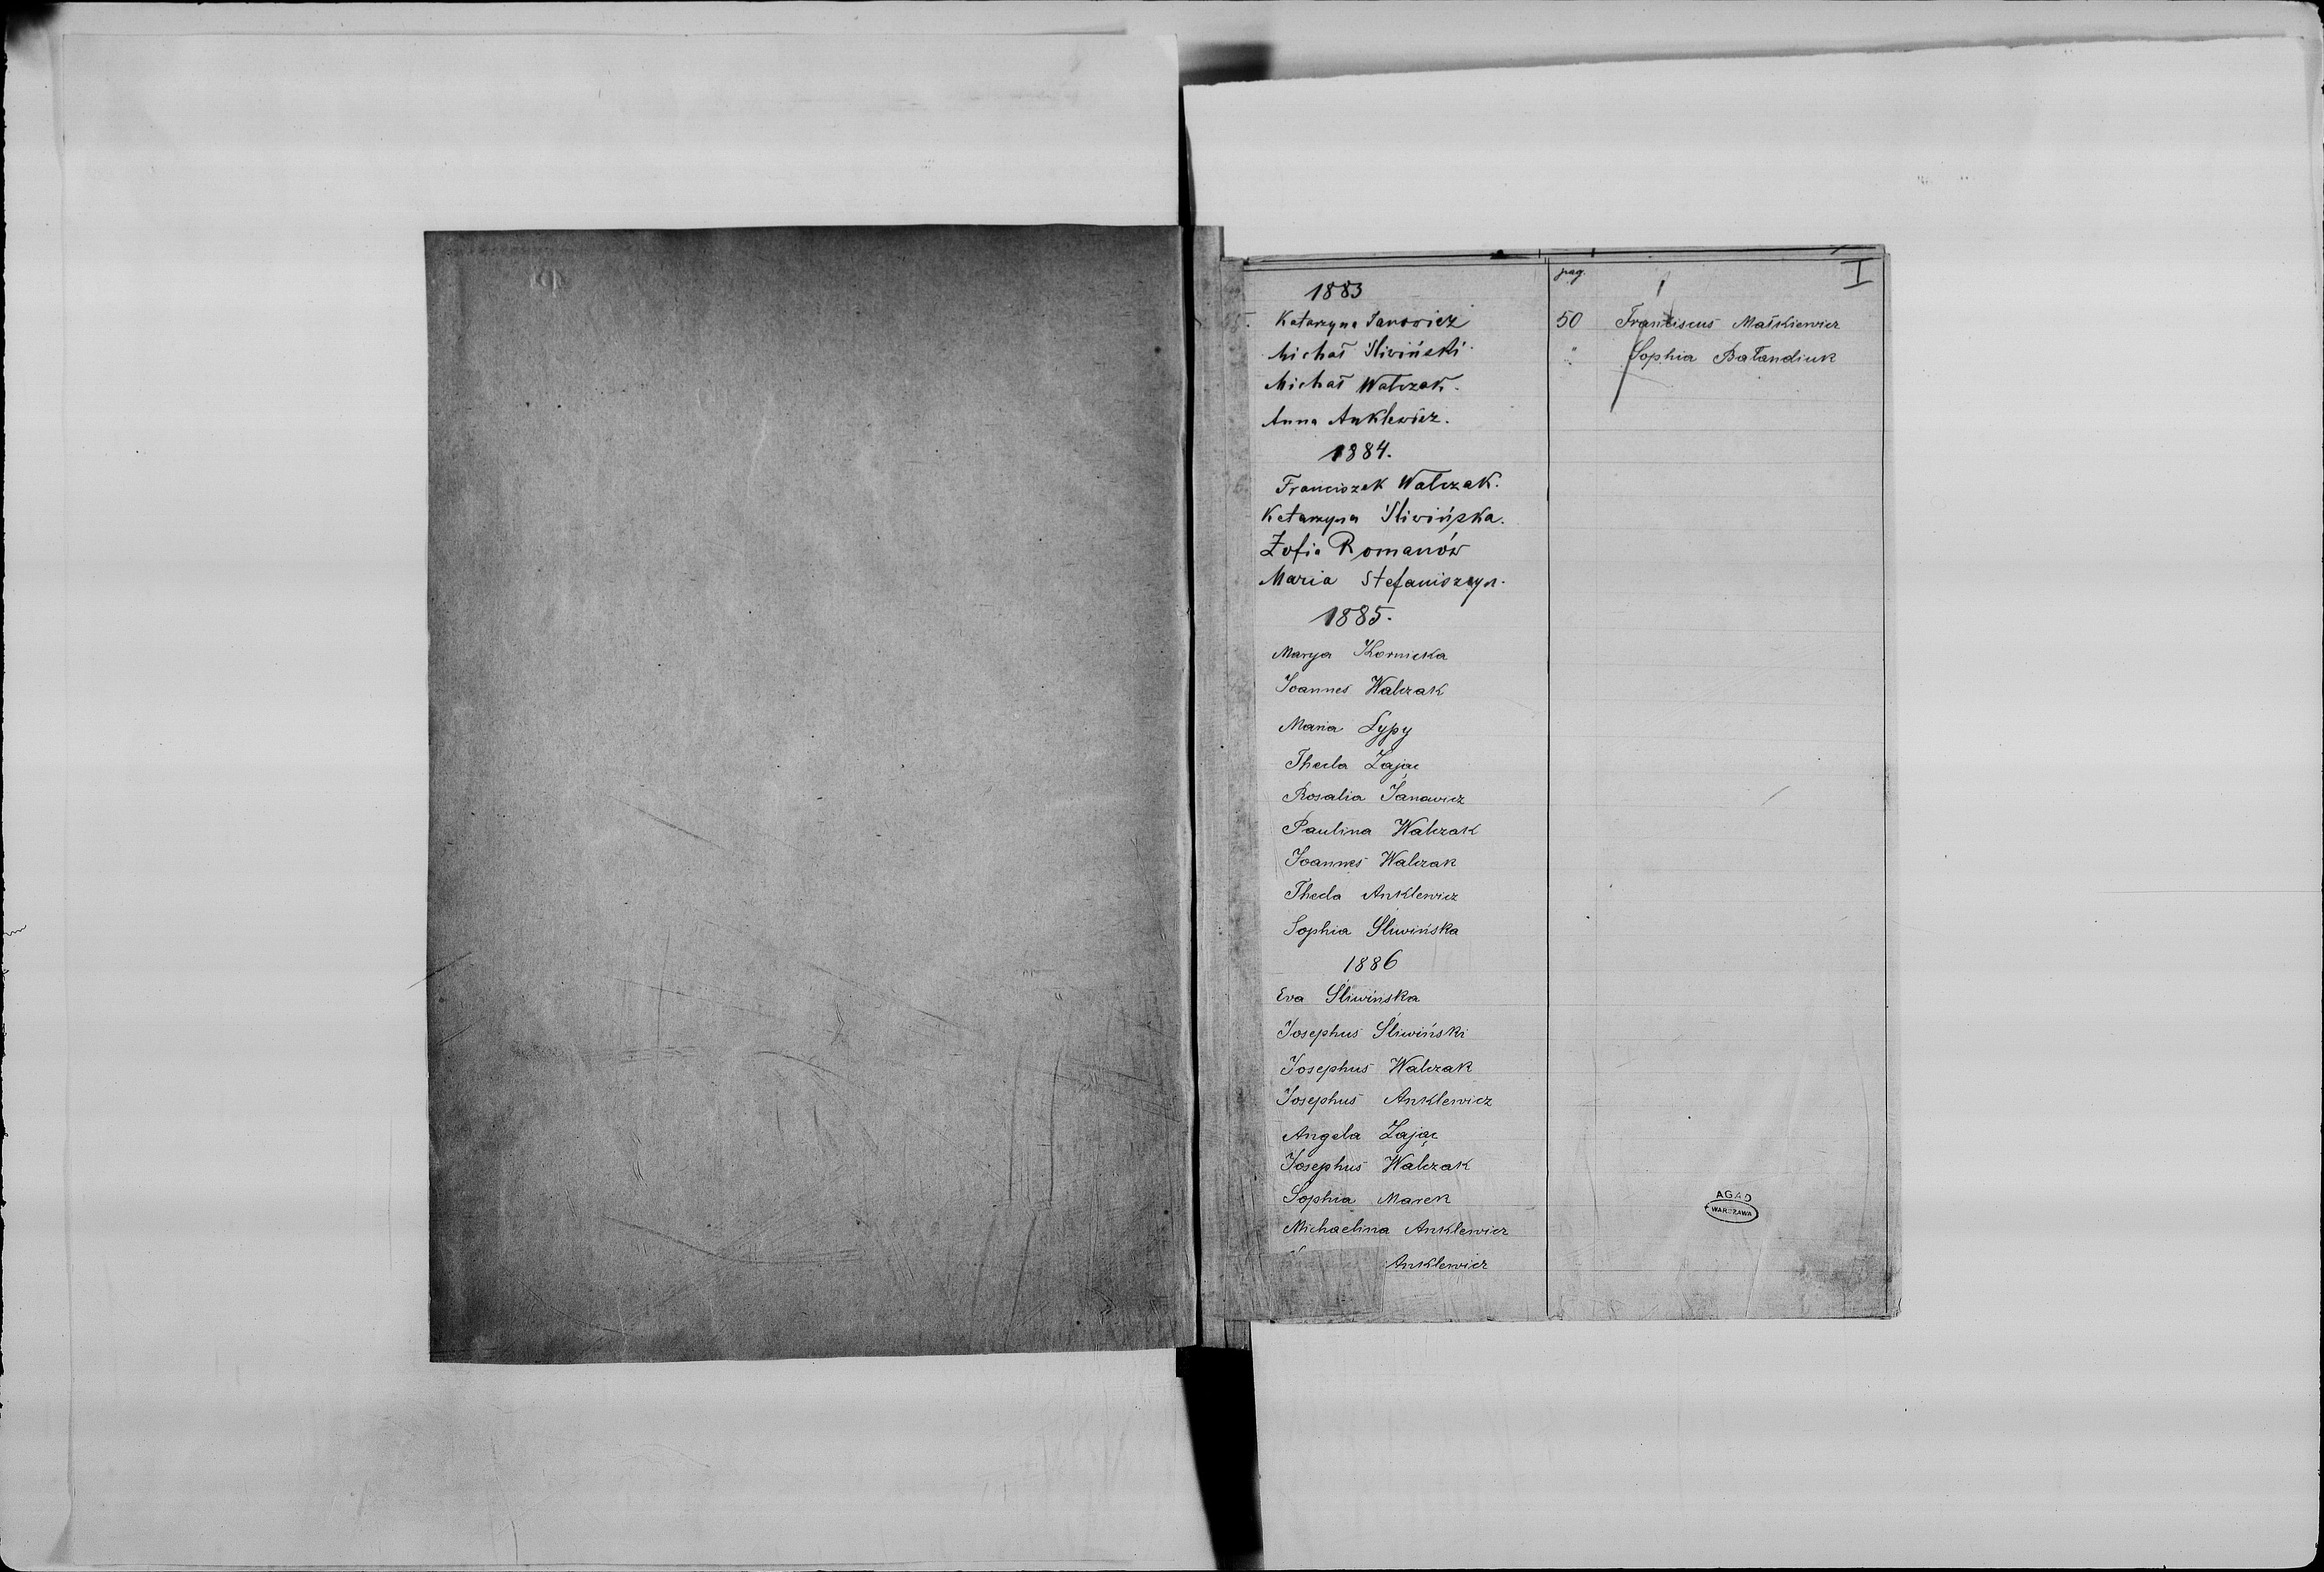 1883
Katarzyna Janowicz
Michał Śliwiński
Michał Walczak.
Anna Anklewicz.
1884.
Franciszek Walczak.
Katarzyna Śliwińska.
Zofia Romanów
Maria Stefaniszyn.
1885.
Marya Kornicka
Joannes Walczak
Maria Lypy
Thecla Zając
Rosalia Janowicz
Paulina Walczak
Joannes Walczak
Thecla Anklewicz
Sophia Śliwińska
1886
Eva Śliwińska
Josephus Śliwiński
Josephus Walczak
Josephus Anklewicz
Angela Zając
Josephus Walczak
Sophia Marek
Michaelina Anklewicz
Anklewicz
pag. I
50 Franciscus Małkiewicz
" Sophia Bałandiuk
AGAD
WARSZAWA